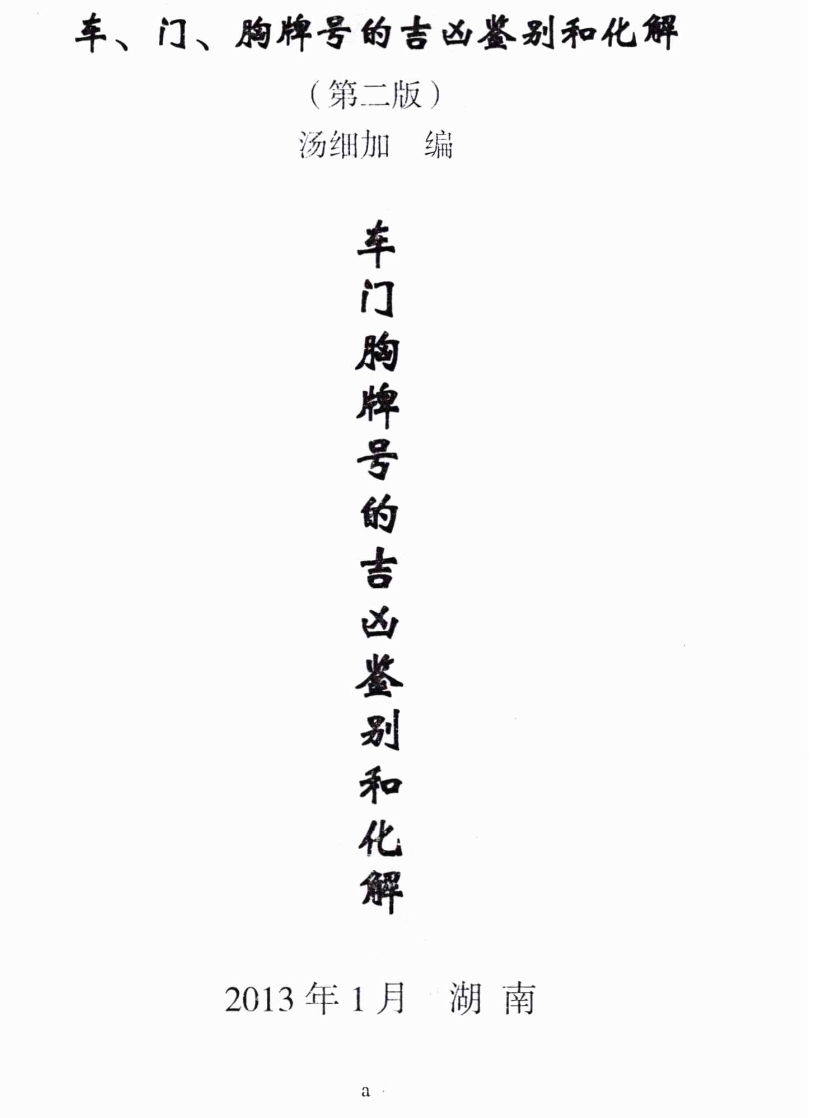 车、门、胸牌号的吉凶鉴别和化解
（第二版）
汤细加 编
车门胸牌号的吉凶鉴别和化解
2013年1月 湖南
a